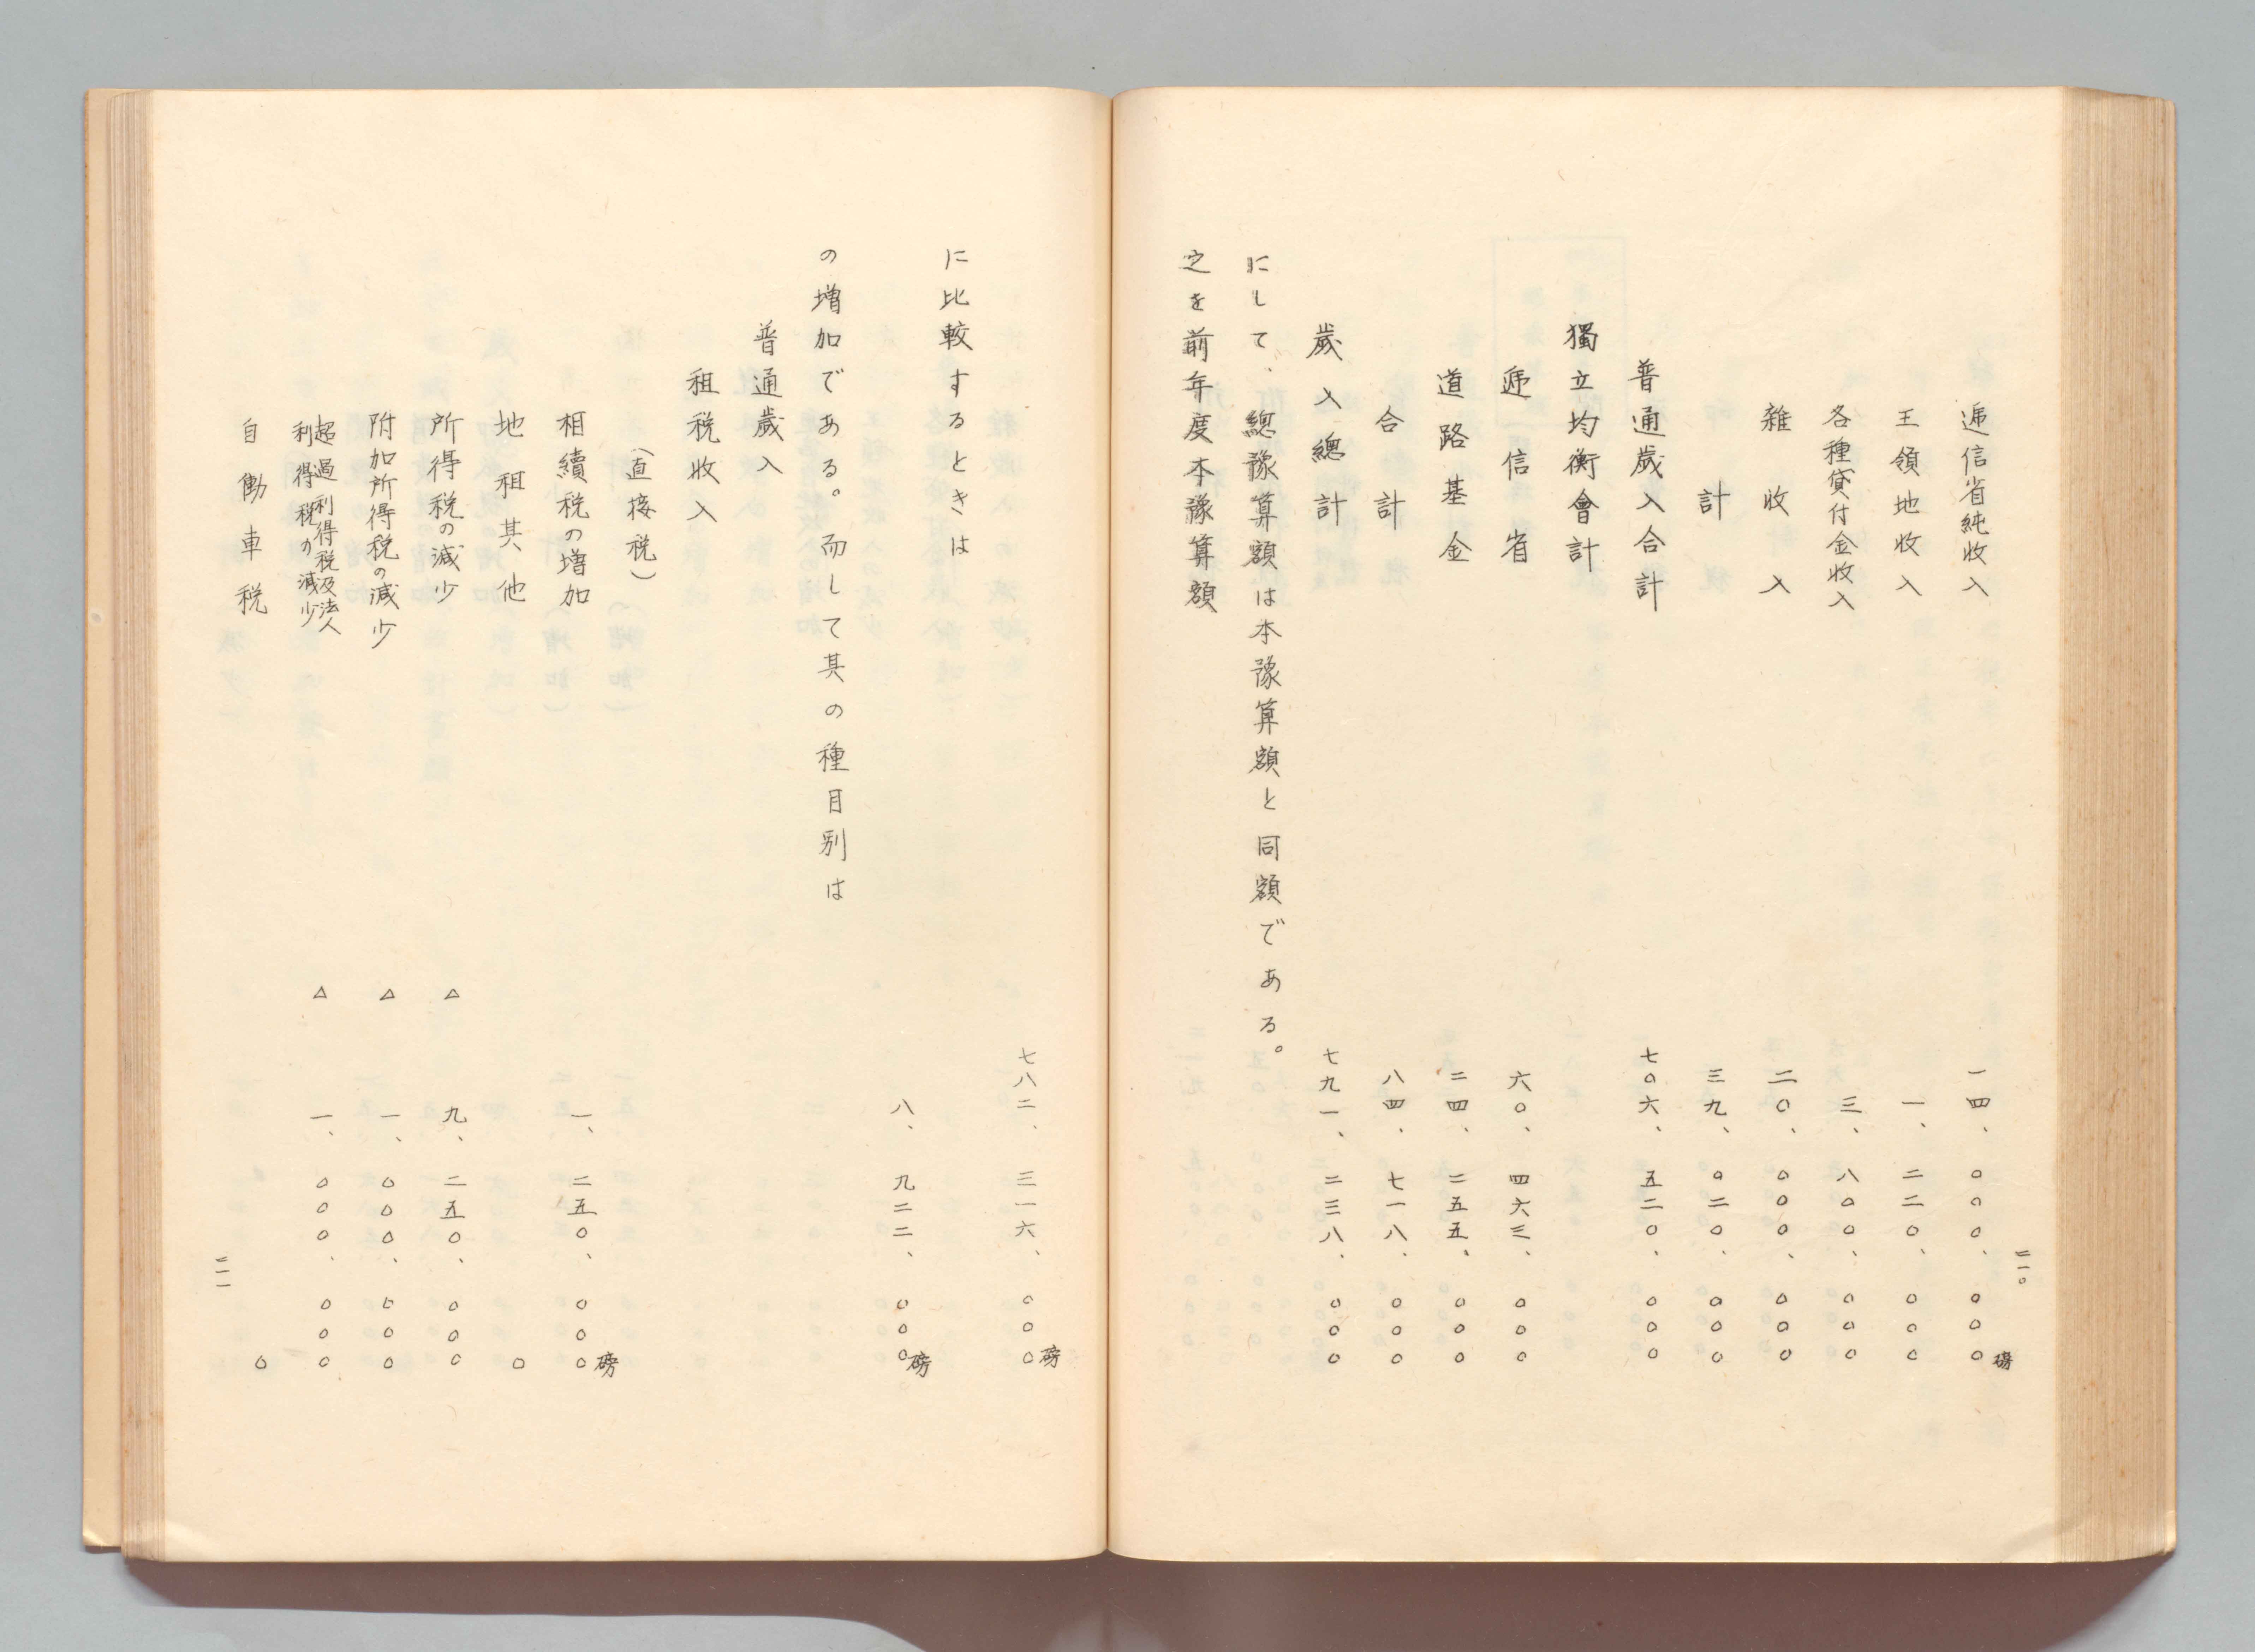 二一〇
逓信省純收入 一四、〇〇〇、〇〇〇磅
王領地收入 一、二二〇、〇〇〇
各種貸付金收入 三、八〇〇、〇〇〇
雜收入 二〇、〇〇〇、〇〇〇
計 三九、〇二〇、〇〇〇
普通歲入合計 七〇六、五二〇、〇〇〇
獨立均衡會計
逓信省 六〇、四六三、〇〇〇
道路基金 二四、二五五、〇〇〇
合計 八四、七一八、〇〇〇
歲入總計 七九一、二三八、〇〇〇
にして、總豫算額は本豫算額と同額である。
之を前年度本豫算額
七八二、三一六、〇〇〇磅
に比較するときは
八、九二二、〇〇〇磅
の增加である。而して其の種目別は
普通歲入
租稅收入
（直接稅）
相續稅の增加 一、二五〇、〇〇〇磅
地租其他 〇
所得稅の減少 △ 九、二五〇、〇〇〇
附加所得稅の減少 △ 一、〇〇〇、〇〇〇
超過利得稅及法人
利得稅の減少 △ 一、〇〇〇、〇〇〇
自動車稅 〇
二一一